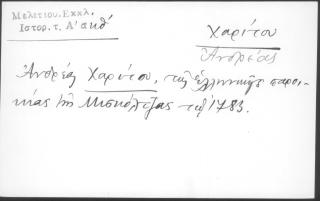 Μελετίου. Εκκλ.
Ιστορ. τ. Α' σκθ'
Χαρίτου
Ανδρέας
Ἀνδρέας Χαρίτου, τῆς ἑλληνικῆς παροι-
κίας τῆς Μισκόλτζας τῷ 1783.